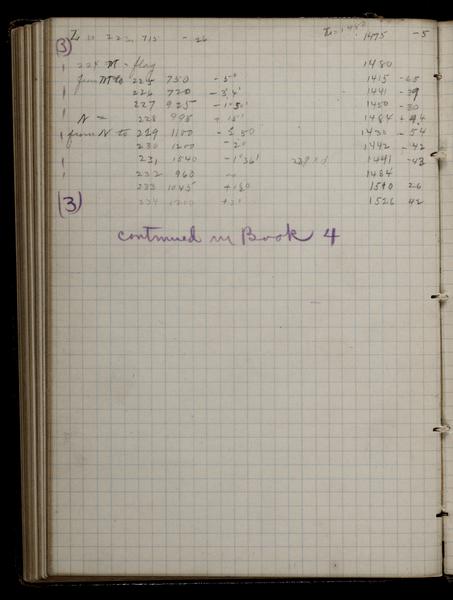 Z to 223 715 - 26 1475 -5
(3)
224 M - flag 1480
from M to 225 750 - 5° 1415 -65
226 720 - 3°4' 1441 -39
227 925 - 1°50' 1450 -30
N = 228 995 + 15' 1484 + 4
from N to 229 1100 - 1 50 1430 - 54
230 1200 - 2° 1442 - 42
231 1540 - 1°36' 1441 -43
232 960 1484
233 1045 1510 26
(3) 234 1200 1526 42
continued in Book 4